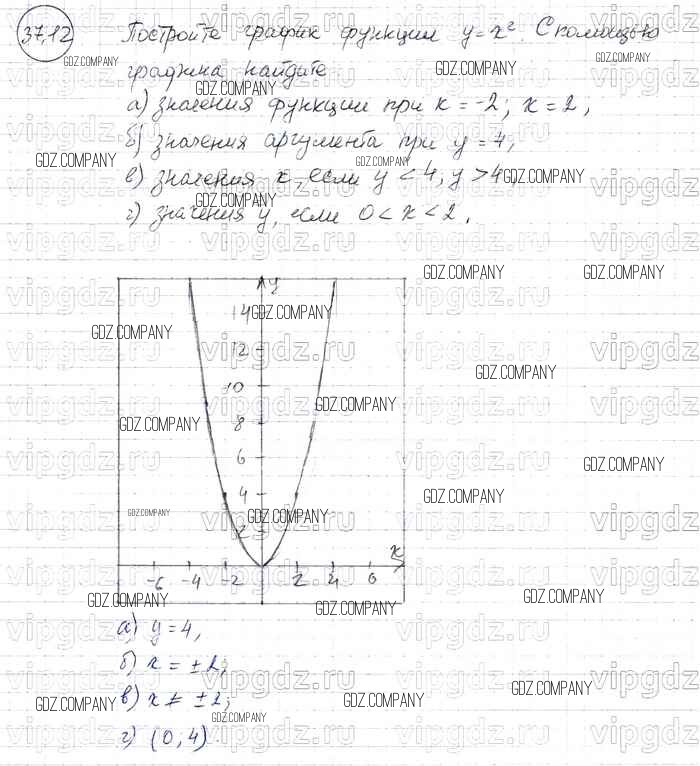 37.12
Постройте график функции y = x². С помощью
графика найдите
а) значения функции при x = -2; x = 2;
б) значения аргумента при y = 4;
в) значения x, если y < 4, y > 4,
г) значения y, если 0 < x < 2.
y
14
12
10
8
6
4
2
x
-6 -4 -2 2 4 6
а) y = 4,
б) x = ±2;
в) x ≠ ±2;
г) (0,4)
GDZ.COMPANY
vipgdz.ru